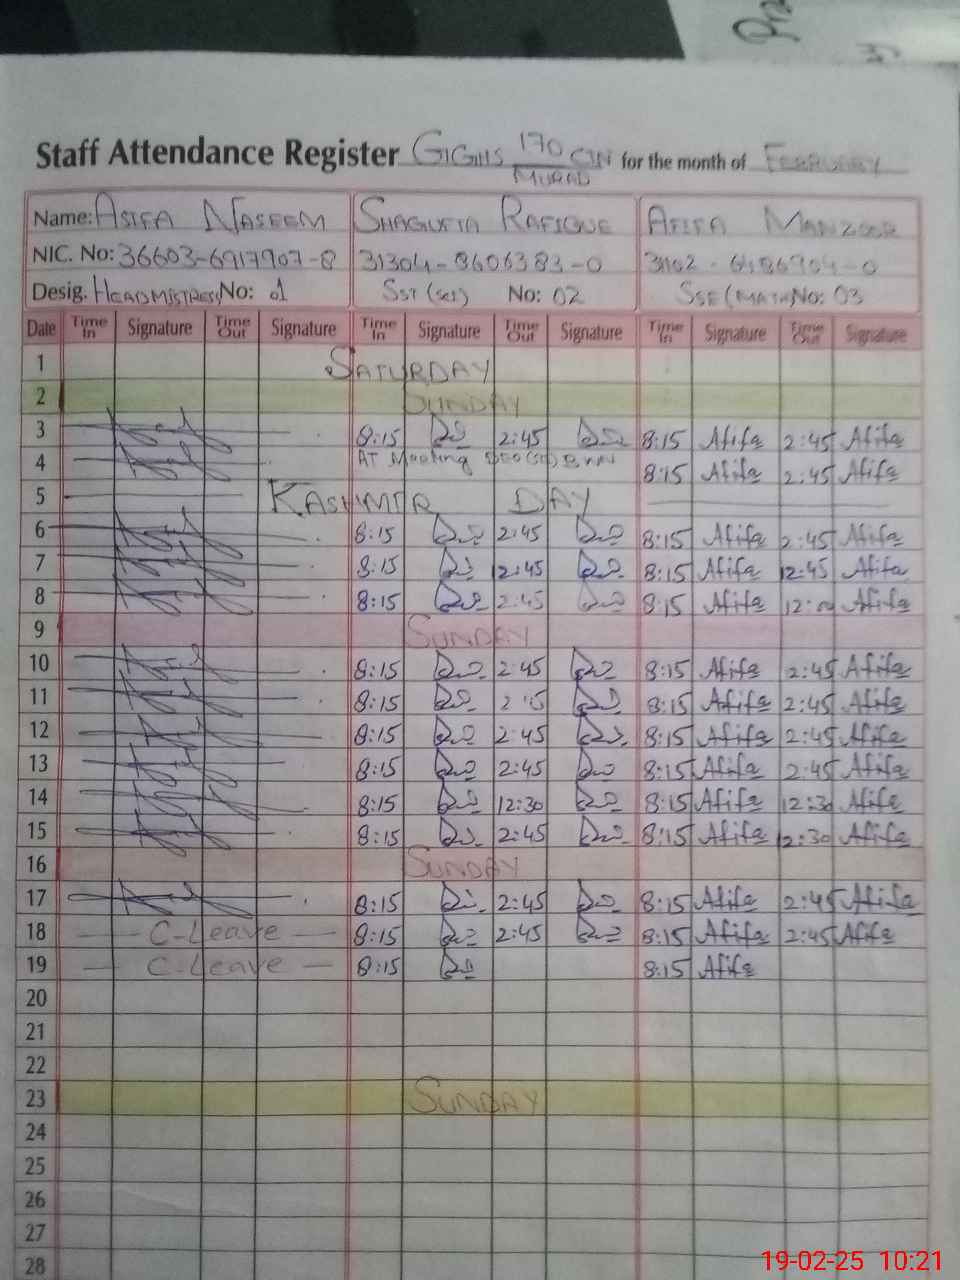 Staff Attendance Register GGHS 170 CTN for the month of FEBRUARY
MURAD
Name: ASIFA NASEEM SHAGUFTA RAFIQUE AFIFA MANZOOR
NIC. No: 36603-6917907-8 31304-8606383-0 31102-6486904-0
Desig. HEADMISTRESS No: 01 SST (sci) No: 02 SSE (MATH) No: 03
Date Time In Signature Time Out Signature Time In Signature Time Out Signature Time In Signature Time Out Signature
1 SATURDAY
2 SUNDAY
3 8:15 2:45 8:15 Afifa 2:45 Afifa
4 AT Meeting DEO 8:15 Afifa 2:45 Afifa
5 KASHMIR DAY
6 8:15 2:45 8:15 Afifa 2:45 Afifa
7 8:15 12:45 8:15 Afifa 12:45 Afifa
8 8:15 2:45 8:15 Afifa Afifa
9 SUNDAY
10 8:15 2:45 8:15 Afifa 2:45 Afifa
11 8:15 8:15 Afifa 2:45 Afifa
12 8:15 2:45 8:15 Afifa 2:45 Afifa
13 8:15 2:45 8:15 Afifa 2:45 Afifa
14 8:15 12:30 8:15 Afifa 12:30 Afifa
15 8:15 2:45 8:15 Afifa 12:30 Afifa
16 SUNDAY
17 8:15 2:45 8:15 Afifa 2:45 Afifa
18 C-Leave 8:15 2:45 8:15 Afifa 2:45 Afifa
19 C-Leave 8:15 8:15 Afifa
20
21
22
23 SUNDAY
24
25
26
27
28
19-02-25 10:21